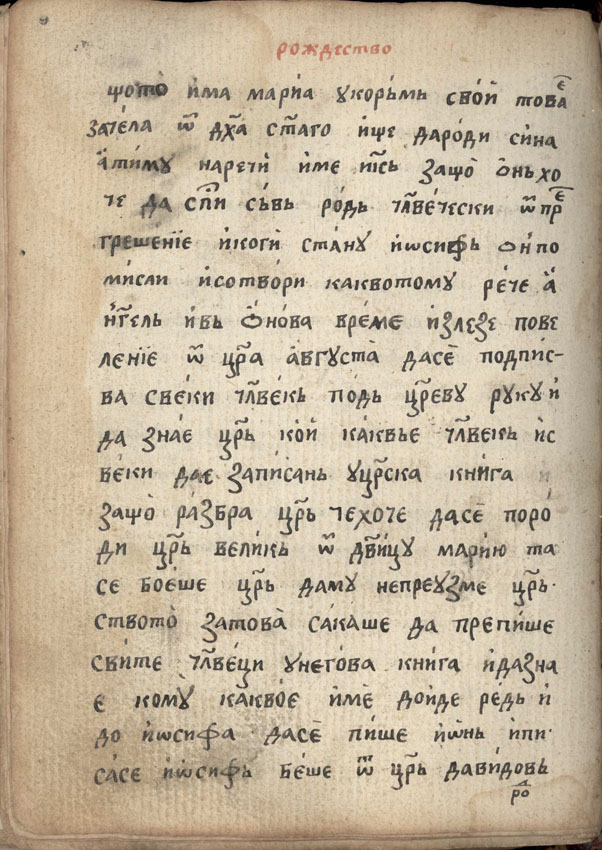 рождество
що̀то̀ и҆ма марі́а ѹкорьмь сво́й това е҆
зате́ла ѿ дх҃а ст҃аго и҆ще дароди си́на
а҆ти́му нарети́ и҆ме і҆с҃ь защо̀ ѻ҆ньхо
че да сп҃и съ́вь ро́дь чл҃ве́чески ѿ пре
греше́нїе и҆коги́ ста́ну и҆ѡсифь ѻ҆нпо
ми́сли и҆сотво́ри каквотому ре́че а҆
н҆гг҃ель и҆вь ѻ҆́нова вре́ме и҆зле́зе пове
ле́нїе ѿ цр҃а а҆́вгуста̀ дасѐ подпи́с-
ва све́ки чл҃ве́кь по́дь цр҃еву ру́ку и҆
да зна́е цр҃ь ко́й ка́квье чл҃векь и҆с
ве́ки дае запи́сань уцр҃ска кни́га
защо̀ ра́збра цр҃ь чехо́че дасѐ поро́
ди цр҃ь вели́кь ѿ дв҃и́цу мари́ю та
се бое́ше цр҃ь да́му непреу́зме цр҃ь
ството̀ затова̀ са́ка́ше да препи́ше
сви́те чл҃ве́ци унего́ва кни́га и҆да́зна
е кому̀ какво́е и҆мѐ до́йде ре́дь и҆
до и҆ѡсифа дасѐ пи́ше и҆ѡ́нь и҆пи
са́се и҆ѡ́сифь бе́ше ѿ цр҃ь дави́довь
ро́д